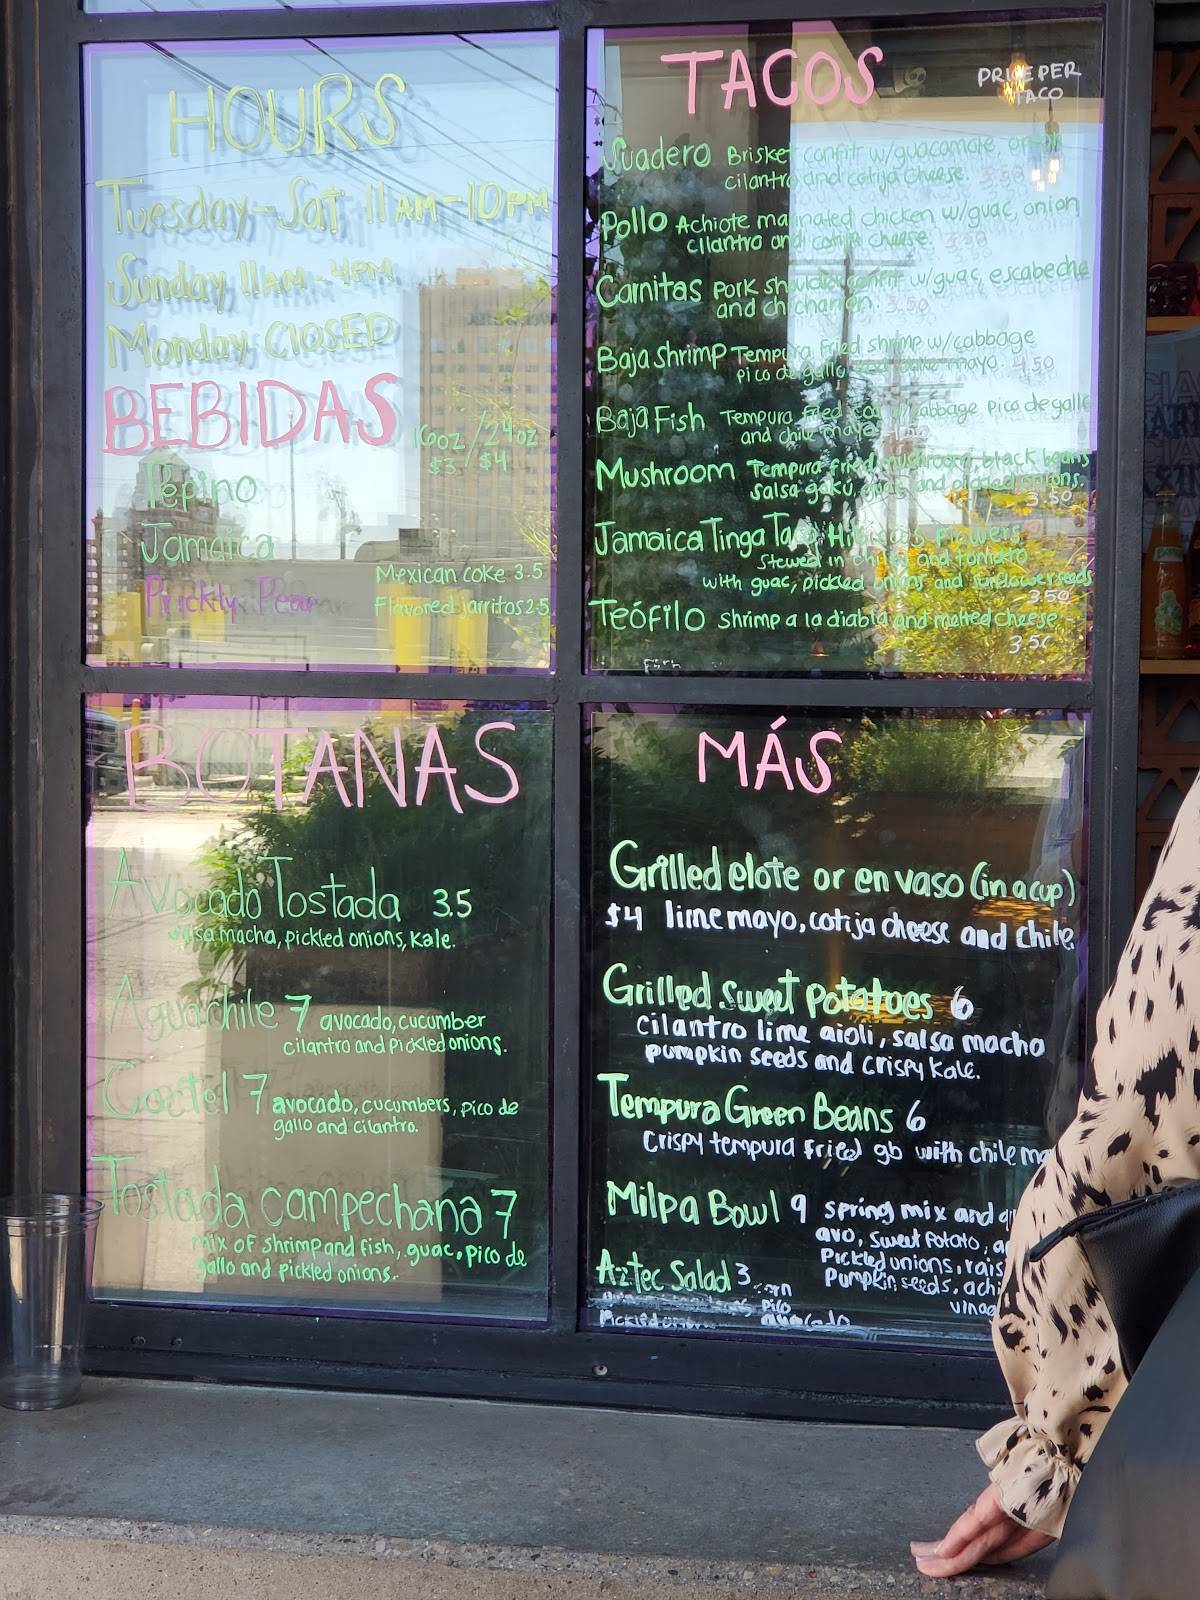 HOURS
Tuesday-Sat 11AM-10PM
Sunday 11AM-4PM
Monday CLOSED
BEBIDAS
16oz/24oz
$3 $4
Pepino
Jamaica
Prickly Pear
Mexican coke 3.5
Flavored jarritos 2.5
TACOS
PRICE PER
TACO
Suadero Brisket confit w/guacamole, onion
cilantro and cotija cheese. 3.50
Pollo Achiote marinated chicken w/guac, onion
cilantro and cotija cheese. 3.50
Carnitas pork shoulder confit w/guac, escabeche
and chicharron. 3.50
Baja Shrimp Tempura fried shrimp w/cabbage
pico de gallo mayo. 4.50
Baja Fish Tempura fried cabbage, pico de gallo
and chile mayo
Mushroom Tempura fried mushroom, black beans
Salsa and pickled onions.
3.50
Jamaica Tinga Taco Hibiscus Flowers
stewed in chile and tomato
with guac, pickled onions and sunflower seeds
3.50
Teófilo shrimp a la diabla and melted cheese
3.50
BOTANAS
Avocado Tostada 3.5
salsa macha, pickled onions, kale.
Aguachile 7 avocado, cucumber
cilantro and pickled onions.
Coctel 7 avocado, cucumbers, pico de
gallo and cilantro.
Tostada campechana 7
mix of shrimp and fish, guac, pico de
gallo and pickled onions.
MÁS
Grilled elote or en vaso (in a cup)
$4 lime mayo, cotija cheese and chile
Grilled Sweet potatoes 6
cilantro lime aioli, salsa macha
pumpkin seeds and crispy kale.
Tempura Green Beans 6
crispy tempura fried gb with chile
Milpa Bowl 9 spring mix and
avo, sweet potato,
Pickled onions,
Pumpkin seeds,
Aztec Salad 3
pico
avocado